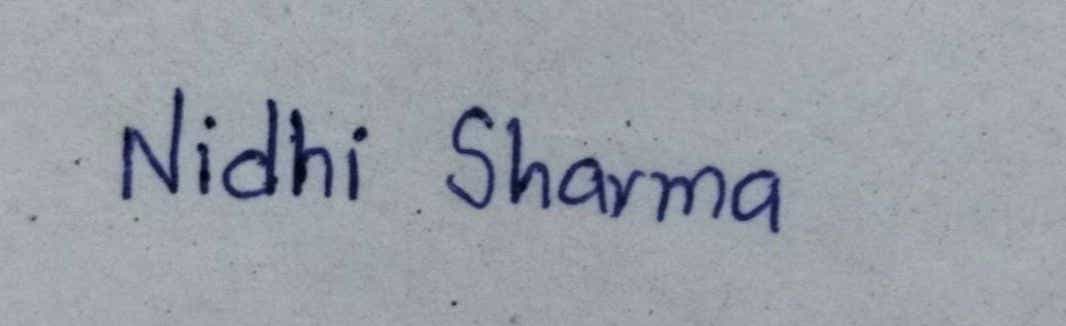 Nidhi Sharma